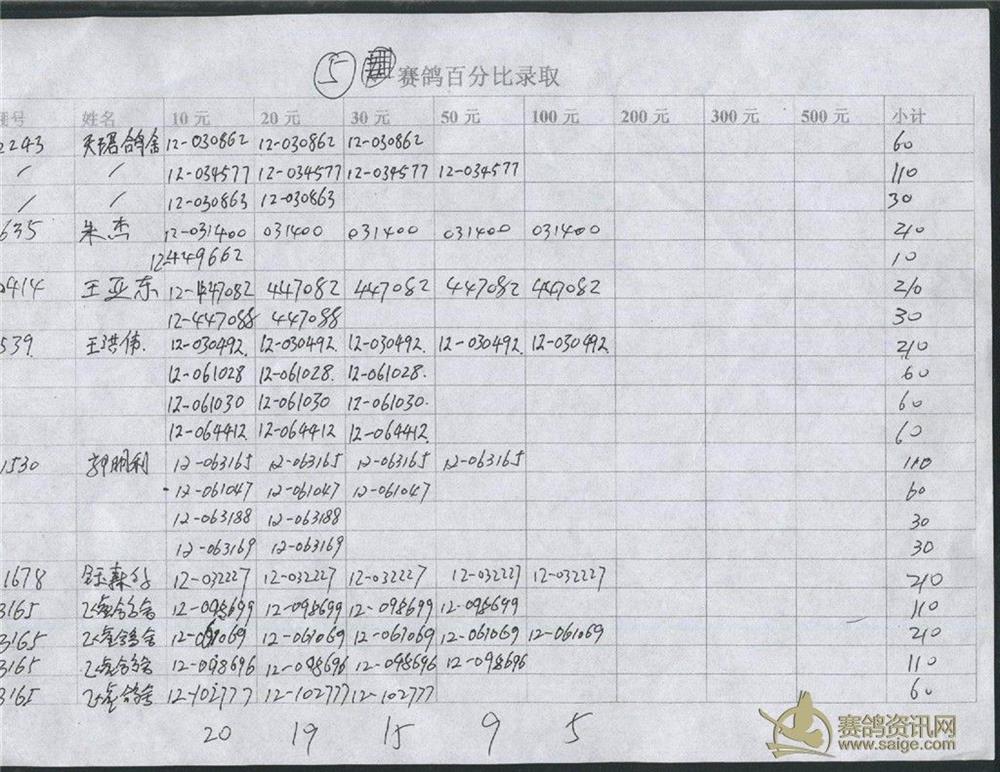 5 赛鸽百分比录取
号 姓名 10 元 20 元 30 元 50 元 100 元 200 元 300 元 500 元 小计
2243 鸽舍 12-030862 12-030862 12-030862 60
/ / 12-034577 12-034577 12-034577 12-034577 110
/ / 12-030863 12-030863 30
635 朱杰 12-031400 031400 031400 031400 031400 210
12-449662 10
0414 王亚东 12-447082 447082 447082 447082 447082 210
12-447088 447088 30
539 王洪伟. 12-030492. 12-030492. 12-030492. 12-030492. 12-030492. 210
12-061028 12-061028. 12-061028. 60
12-061030 12-061030 12-061030. 60
12-064412 12-064412 12-064412. 60
1530 郭朋利 12-063165 12-063165 12-063165 12-063165 110
-12-061047 12-061047 12-061047 60
12-063188 12-063188 30
12-063169 12-063169 30
1678 12-032227 12-032227 12-032227 12-032227 12-032227 210
3165 鸽舍 12-098699 12-098699 12-098699 12-098699 110
3165 鸽舍 12-061069 12-061069 12-061069 12-061069 12-061069 210
3165 鸽舍 12-098696 12-098696 12-098696 12-098696 110
3165 鸽舍 12-102777 12-102777 12-102777 60
20 19 15 9 5
赛鸽资讯网
www.saige.com